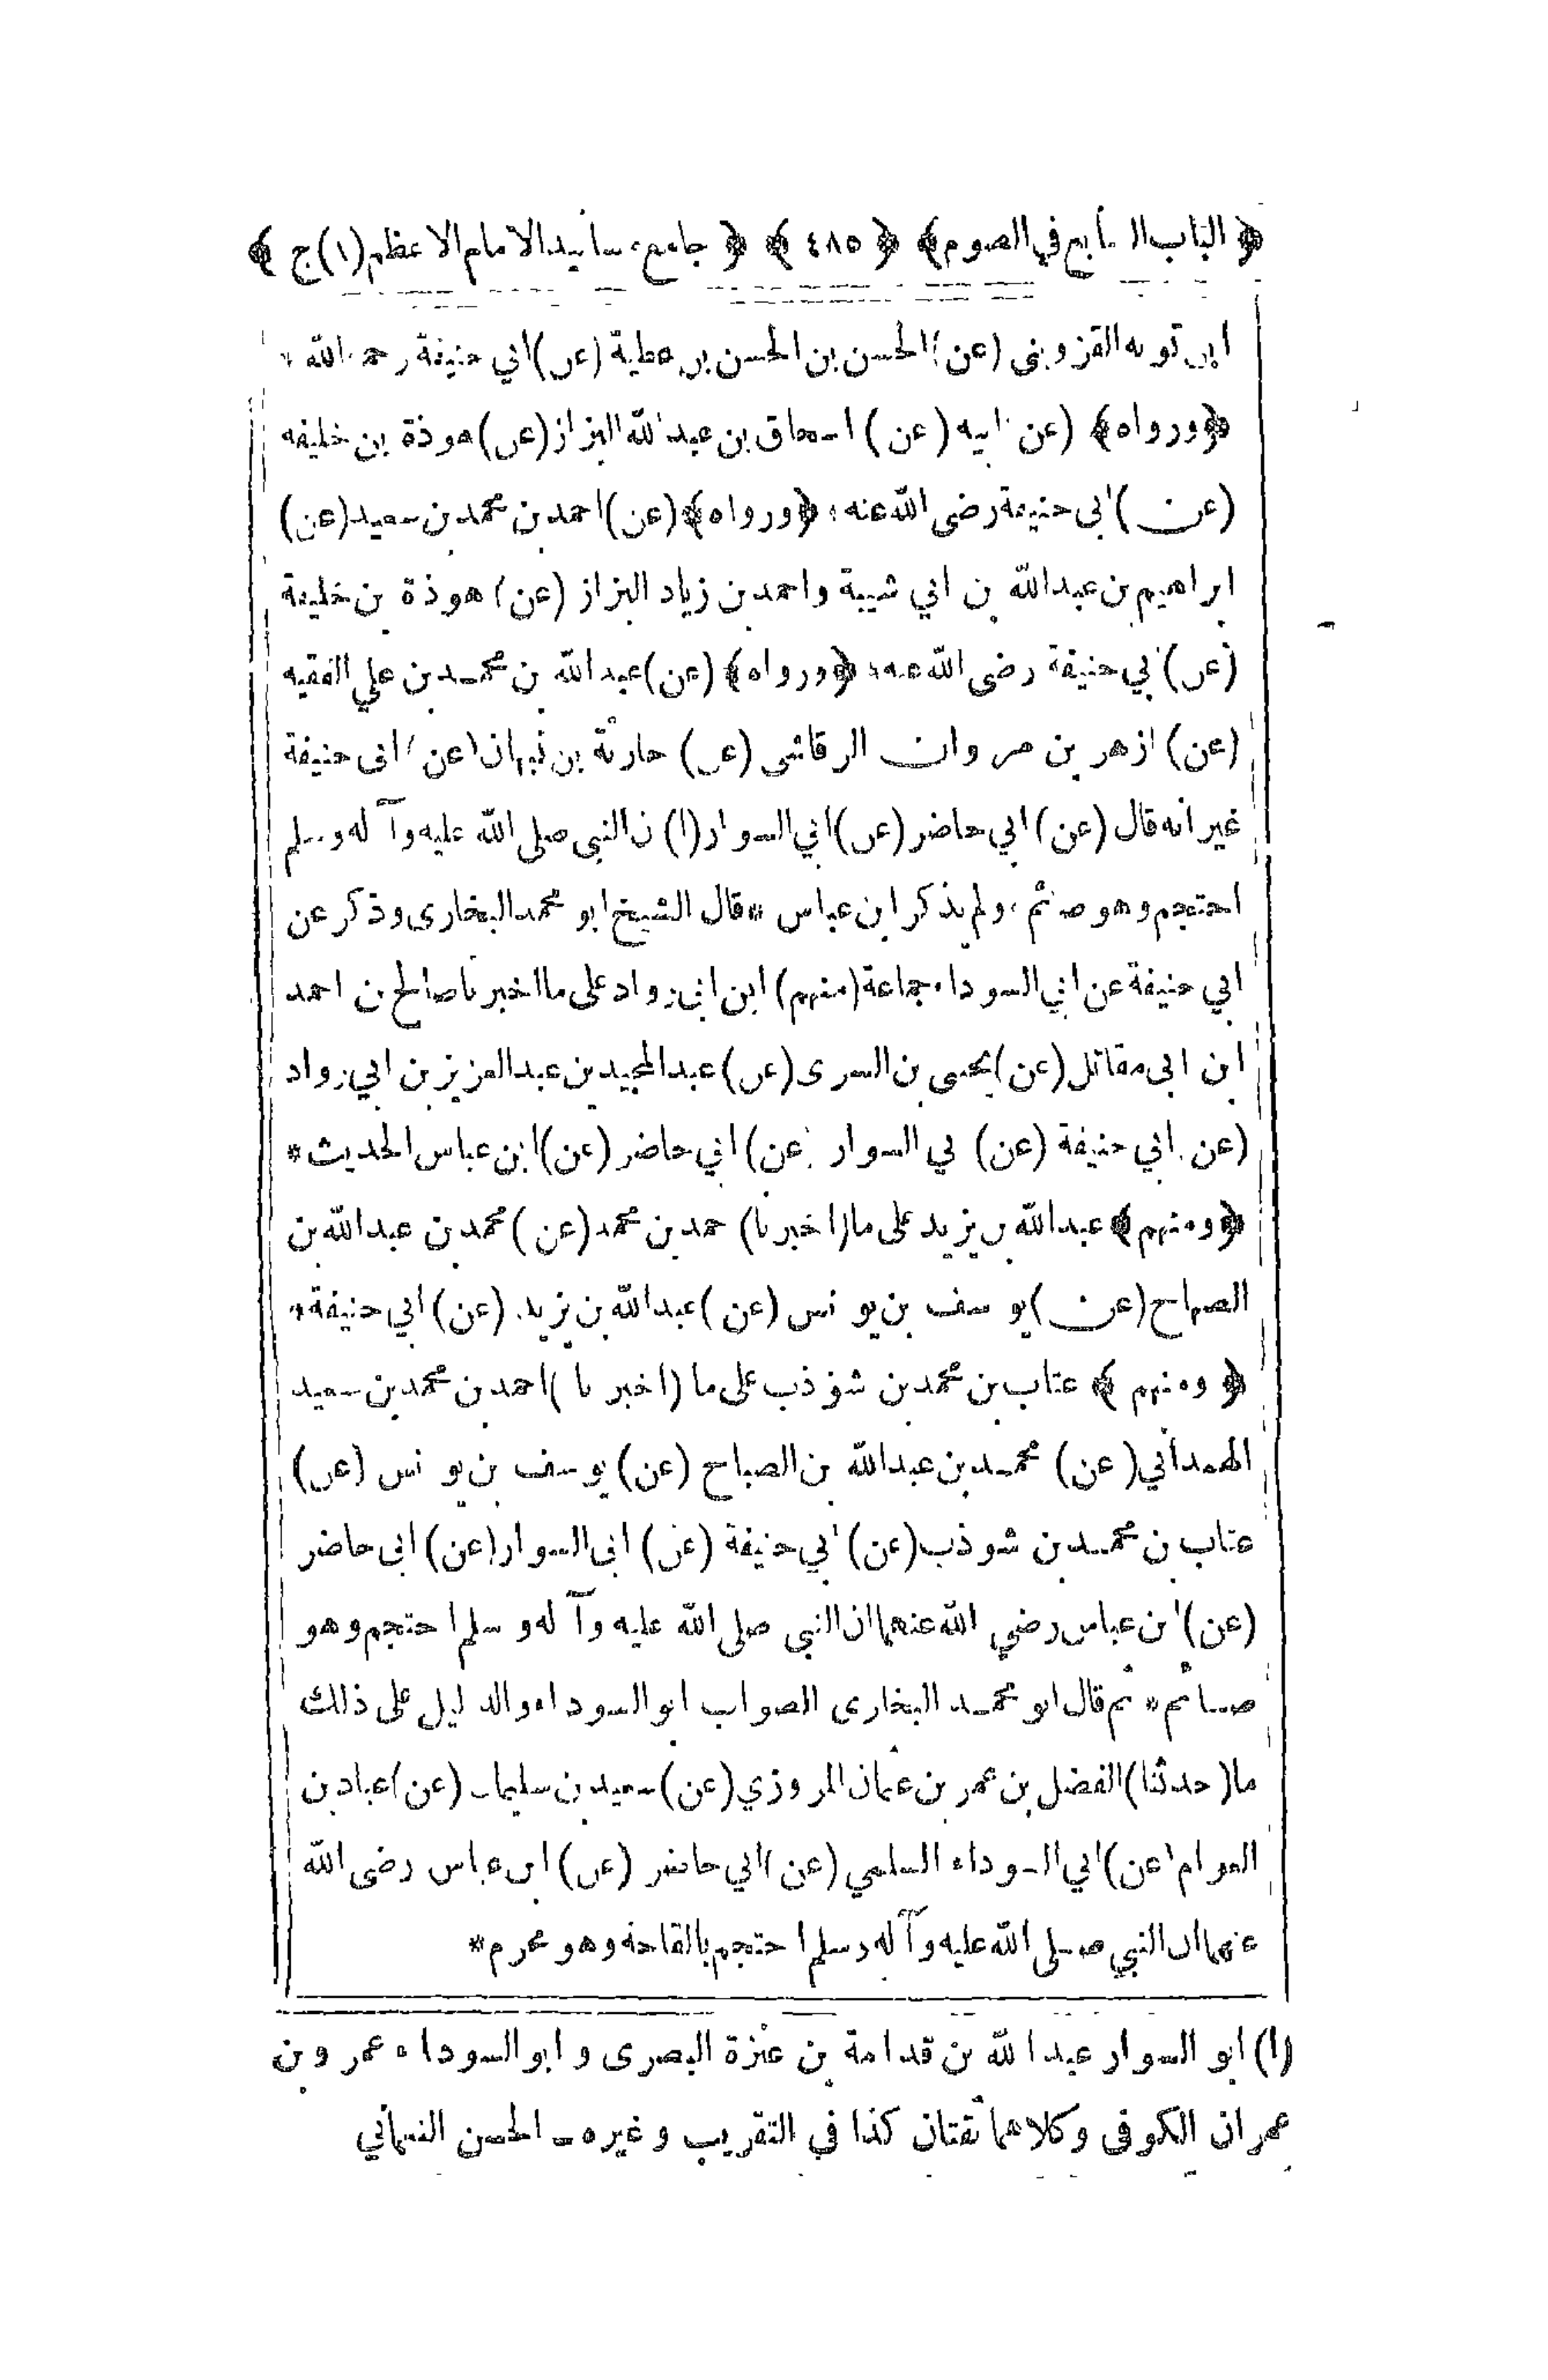 ﴿ الباب السابع في الصوم ﴾ ﴿ ٤٨٥ ﴾ ﴿ جامع مسانيد الامام الاعظم (١) ج ﴾
ابن توبه القزويني (عن) الحسن بن الحسن بن عطية (عن) ابي حنيفة رحمه الله *
﴿ورواه﴾ (عن) ابيه (عن) اسحاق بن عبد الله البزاز (عن) هوذة بن خليفه
(عن) ابي حنيفة رضى الله عنه * ﴿ورواه﴾ (عن) احمد بن محمد بن سعيد (عن)
ابراهيم بن عبد الله بن ابي شيبة واحمد بن زياد البزاز (عن) هوذة بن خليفة
(عن) ابي حنيفة رضى الله عنه * ﴿ورواه﴾ (عن) عبد الله بن محمد بن علي الفقيه
(عن) ازهر بن مروان الرقاشى (عن) حارثة بن نبهان (عن) ابى حنيفة
غير انه قال (عن) ابي حاضر (عن) ابي السوار (١) ان النبي صلى الله عليه وآله وسلم
احتجم وهو صائم ولم يذكر ابن عباس * قال الشيخ ابو محمد البخارى وذكر عن
ابي حنيفة عن ابي السوداء جماعة (منهم) ابن ابي رواد على ما اخبرنا صالح بن احمد
ابن ابى مقاتل (عن) يحيى بن السرى (عن) عبد المجيد بن عبد العزيز بن ابي رواد
(عن) ابي حنيفة (عن) ابي السوار (عن) ابي حاضر (عن) ابن عباس الحديث *
﴿ومنهم﴾ عبد الله بن يزيد على ما (اخبرنا) احمد بن محمد (عن) محمد بن عبد الله بن
الصباح (عن) يوسف بن يونس (عن) عبد الله بن يزيد (عن) ابي حنيفة *
﴿ومنهم﴾ عتاب بن محمد بن شوذب على ما (اخبرنا) احمد بن محمد بن سعيد
الهمداني (عن) محمد بن عبد الله بن الصباح (عن) يوسف بن يونس (عن)
عتاب بن محمد بن شوذب (عن) ابي حنيفة (عن) ابى السوار (عن) ابى حاضر
(عن) ابن عباس رضي الله عنهما ان النبي صلى الله عليه وآله وسلم احتجم وهو
صائم * ثم قال ابو محمد البخارى الصواب ابو السوداء والدليل على ذلك
ما (حدثنا) الفضل بن عمر بن عثمان المروزي (عن) سعيد بن سليمان (عن) عباد بن
العوام (عن) ابي السوداء السلمي (عن) ابي حاضر (عن) ابن عباس رضى الله
عنهما ان النبي صلى الله عليه وآله وسلم احتجم بالقاحة وهو محرم *
(١) ابو السوار عبد الله بن قدامة بن عنزة البصرى وابو السوداء عمرو بن
عمران الكوفى وكلاهما ثقتان كذا في التقريب وغيره ـ الحسن النعماني